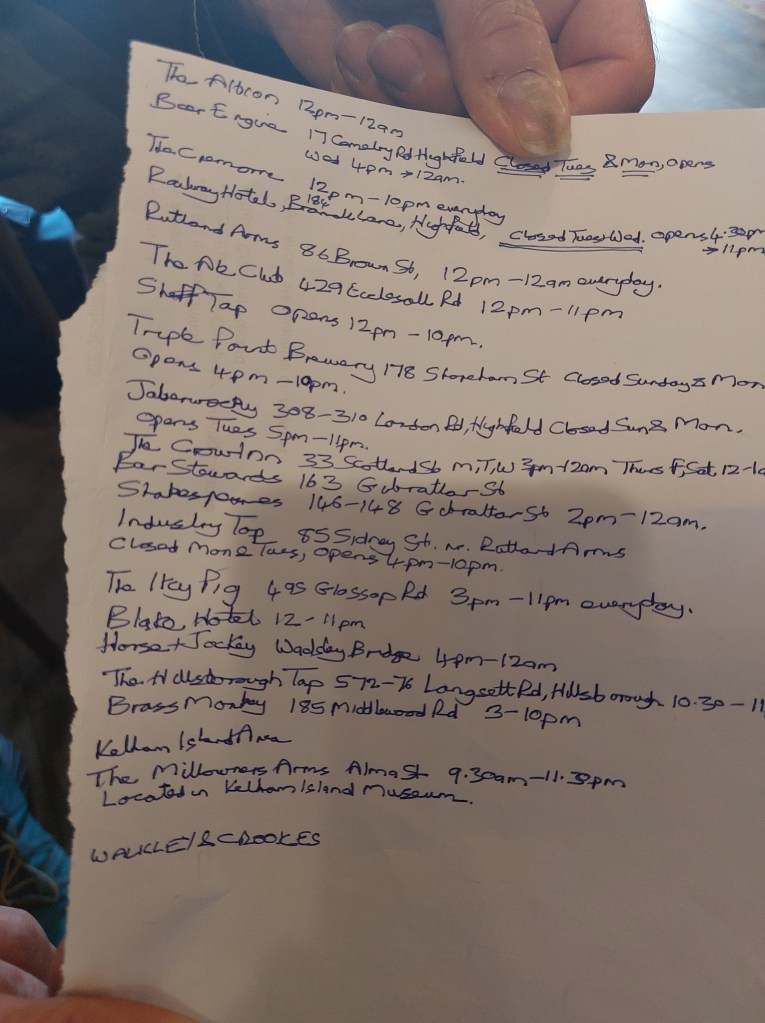 The Albion 12pm-12am
Beer Engine 17 Cemetry Rd Highfield Closed Tues & Mon, opens
Wed 4pm → 12am.
The Cremorne 12pm - 10pm everyday
Railway Hotel, 184 Bramall Lane, Highfield, Closed Tues, Wed. opens 4.30pm
→ 11pm
Rutland Arms 86 Brown St, 12pm - 12am everyday.
The Ale Club 429 Ecclesall Rd 12pm - 11pm
Sheff Tap opens 12pm - 10pm.
Triple Point Brewery 178 Shoreham St Closed Sunday & Mon
Opens 4pm - 10pm.
Jaberwocky 308-310 London Rd, Highfield Closed Sun & Mon.
opens Tues 5pm - 11pm.
The Crow Inn 33 Scotland St M,T,W 3pm-12am Thurs F, Sat, 12-1a
Bar Stewards 163 Gibraltar St
Shakespeares 146-148 Gibraltar St 2pm - 12am.
Industry Tap 85 Sidney St. nr. Rutland Arms
Closed Mon & Tues, opens 4pm-10pm.
The Itchy Pig 495 Glossop Rd 3pm - 11pm everyday.
Blake Hotel 12 - 11pm
Horse + Jockey Wadsley Bridge 4pm-12am
The Hillsborough Tap 572-76 Langsett Rd, Hillsborough 10.30 - 11
Brass Monkey 185 Middlewood Rd 3-10pm
Kelham Island Area
The Millowners Arms Alma St 9.30am-11.30pm
Located in Kelham Island Museum.
WALKLEY & CROOKES